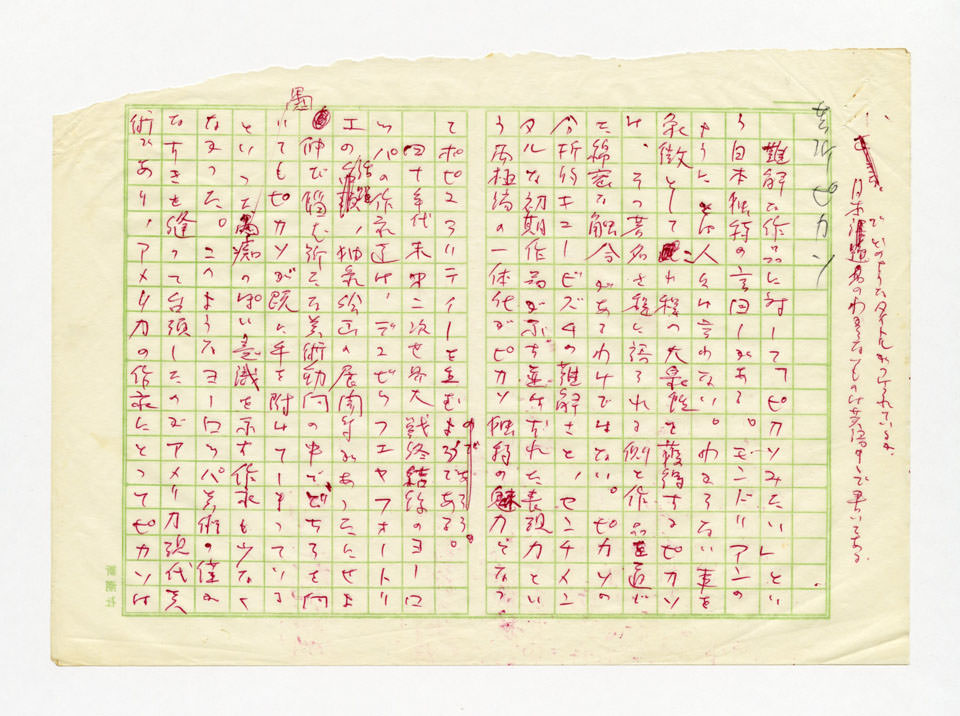 どのようなタイトルがつけられているか
難解な作品に対して「ピカソみたい」とい
う日本独特の言回しがある。モンドリアンの
ようにとは人々は言わない。わからない事を
象徴としてこれ程の大衆性を獲得するピカソ
は、その著名さ程に語られる側と作品を直に
た綿密な触合があってわけではない。ピカソの
分析的キュービズムの難解さと、センチメン
タルな初期作品がぶち並けられた表現力とい
う両極端の一体化がピカソ独特の魅力となっ
てポピュラリティーを生むのであろう。
四十年代末第二次世界大戦終結後のヨーロ
ッパの作家達は、デュビュッフェやフォートリ
エの台頭、抽象絵画の展開等があったにせよ
仲び悩む所にた美術動向の中でどちらを向
いてもピカソが既に手を附けてしまっている
といった愚痴のぽい意識を示す作家も少なく
なかった。このようなヨーロッパ美術の佳み
なすきを縫って台頭したのがアメリカ現代美
術であり、アメリカの作家にとってピカソは
愚